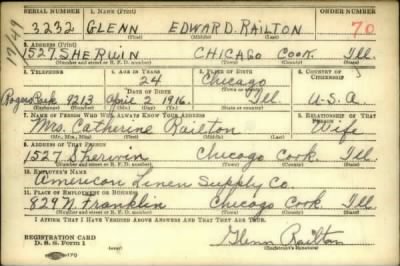 SERIAL NUMBER 1. NAME (Print) ORDER NUMBER
3232 GLENN EDWARD RAILTON 70
(First) (Middle) (Last)
2. ADDRESS (Print)
1527 SHERWIN CHICAGO COOK Ill.
(Number and street or R. F. D. number) (Town) (County) (State)
3. TELEPHONE 4. AGE IN YEARS 5. PLACE OF BIRTH 6. COUNTRY OF CITIZENSHIP
24 Chicago
DATE OF BIRTH (Town or county)
Rogers Park 9213 April 2 1916 Ill. U.S.A.
(Exchange) (Number) (Mo.) (Day) (Yr.) (State or country)
7. NAME OF PERSON WHO WILL ALWAYS KNOW YOUR ADDRESS 8. RELATIONSHIP OF THAT PERSON
Mrs. Catherine Railton Wife
(Mr., Mrs., Miss) (First) (Middle) (Last)
9. ADDRESS OF THAT PERSON
1527 Sherwin Chicago Cook Ill.
(Number and street or R. F. D. number) (Town) (County) (State)
10. EMPLOYER'S NAME
American Linen Supply Co.
11. PLACE OF EMPLOYMENT OR BUSINESS
829 N. Franklin Chicago Cook Ill.
(Number and street or R. F. D. number) (Town) (County) (State)
I AFFIRM THAT I HAVE VERIFIED ABOVE ANSWERS AND THAT THEY ARE TRUE.
REGISTRATION CARD
D. S. S. Form 1
Glenn Railton
(Registrant's signature)